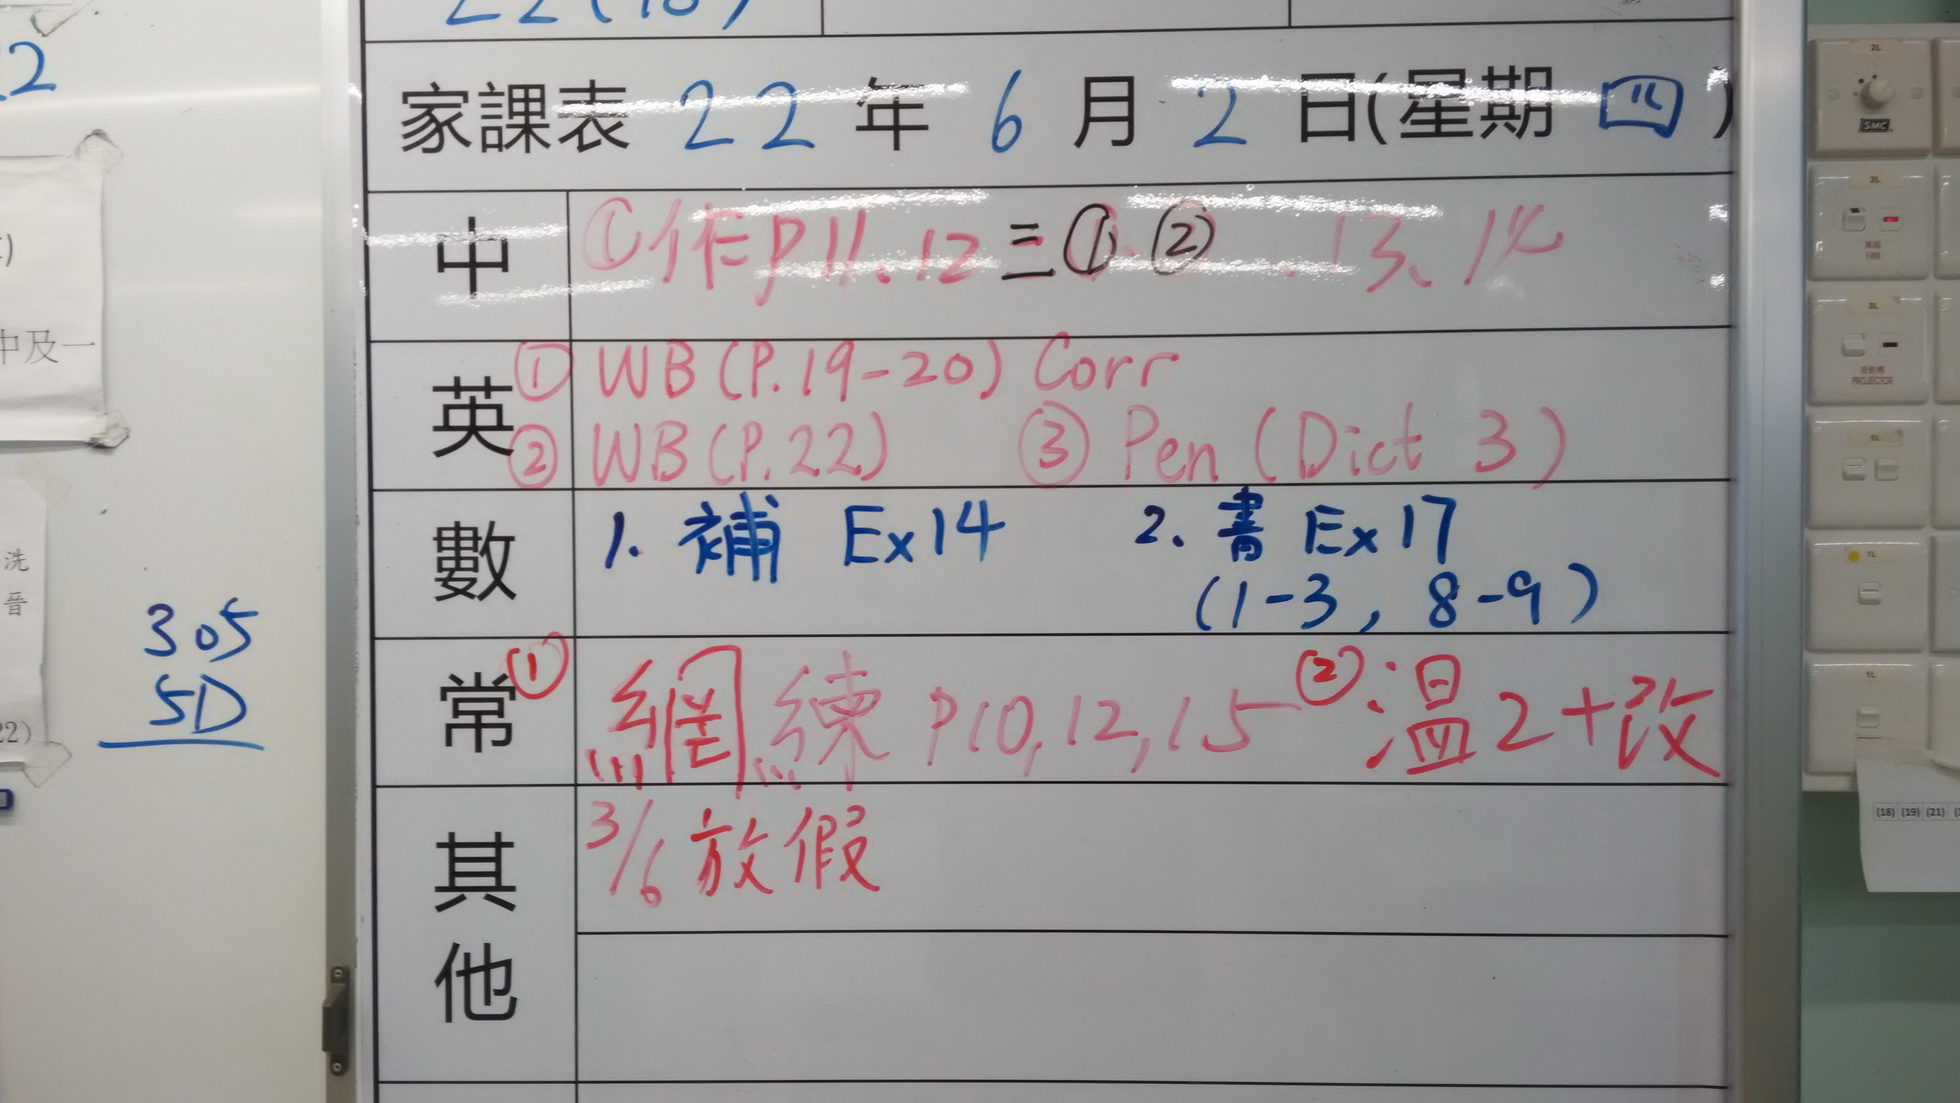 22(18)
22
家課表 22 年 6 月 2 日(星期 四)
中 ①作P11.12 三① ② . 13、14
中及一
英 ① WB (P.19-20) Corr
② WB (P.22) ③ Pen (Dict 3)
數 1. 補 Ex14 2. 書 Ex17
(1-3, 8-9)
洗
晉
22)
305
5D
常 ① 網練 P10,12,15 ② 溫2+改
其他 3/6 放假
2L
SMC
2L
FAN
2L
投影機
PROJECTOR
1L
1L
1L
(18) (19) (21)